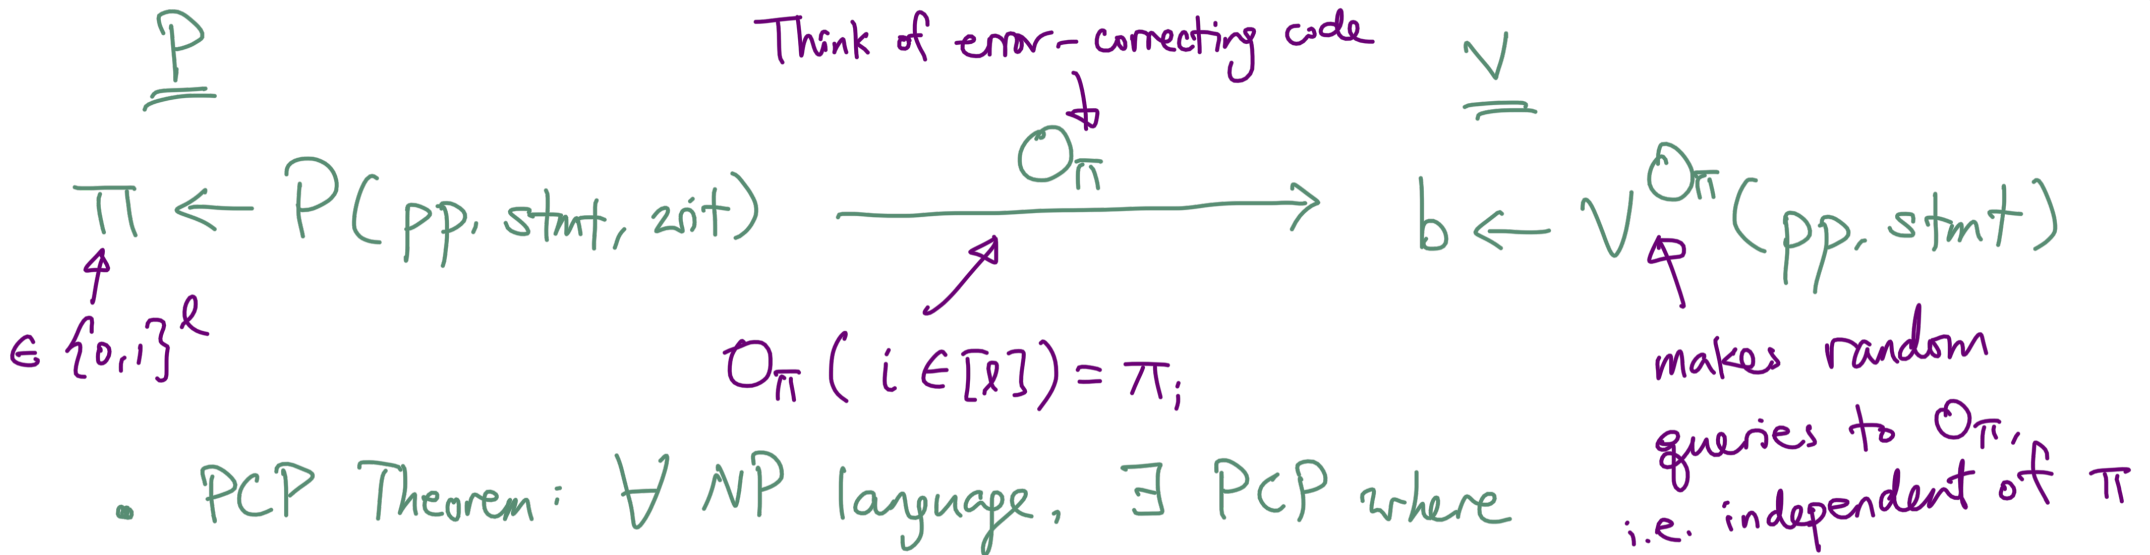 P
Think of error-correcting code
V
O_π
π ← P(pp, stmt, wit)
b ← V^{O_π}(pp, stmt)
∈ {0,1}^ℓ
O_π(i ∈ [ℓ]) = π_i
makes random
queries to O_π,
i.e. independent of π
• PCP Theorem: ∀ NP language, ∃ PCP where